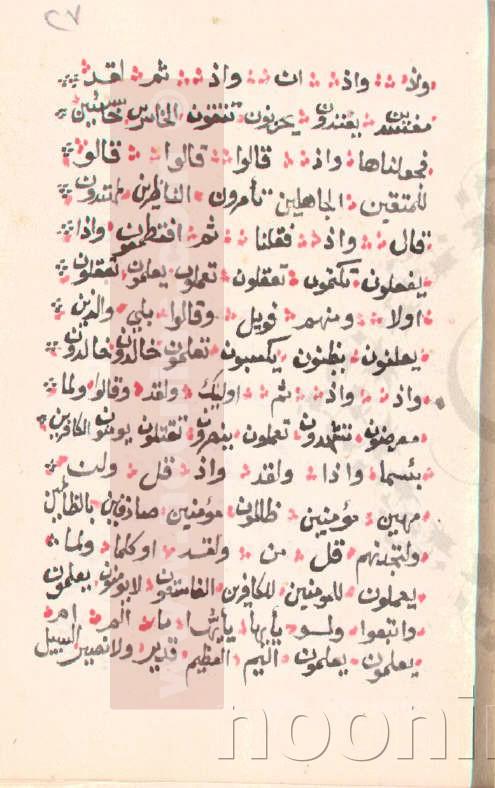 ٢٧
واذ واذ ان واذ ثم لقد
مفسدين يعتدون يحزنون تتقون الخاسرين خاسئين
فجعلناها واذ قالوا قالوا قالو
للمتقين الجاهلين تأمرون الناظرين لمهتدون
قال واذ فقلنا ثم افتطمعون واذا
يفعلون تكتمون تعقلون تعملون يعلمون تعقلون
اولا ومنهم فويل وقالوا بلى والذين
يعلنون يظنون يكسبون تعلمون خالدون خالدون
واذ واذ ثم اولئك ولقد وقالوا ولما
معرضون تشهدون تعملون ينصرون تقتلون يومنون الكافرين
بئسما واذا ولقد واذ قل ولن
مهين مؤمنين ظالمون مؤمنين صادقين بالظالمين
ولتجدنهم قل من ولقد اوكلما ولما
يعملون للمومنين للكافرين الفاسقون لايومنون يعلمون
واتبعوا ولو يأيها يأيها ما الم ام
يعلمون يعلمون اليم العظيم قدير ولانصير السبيل
noori